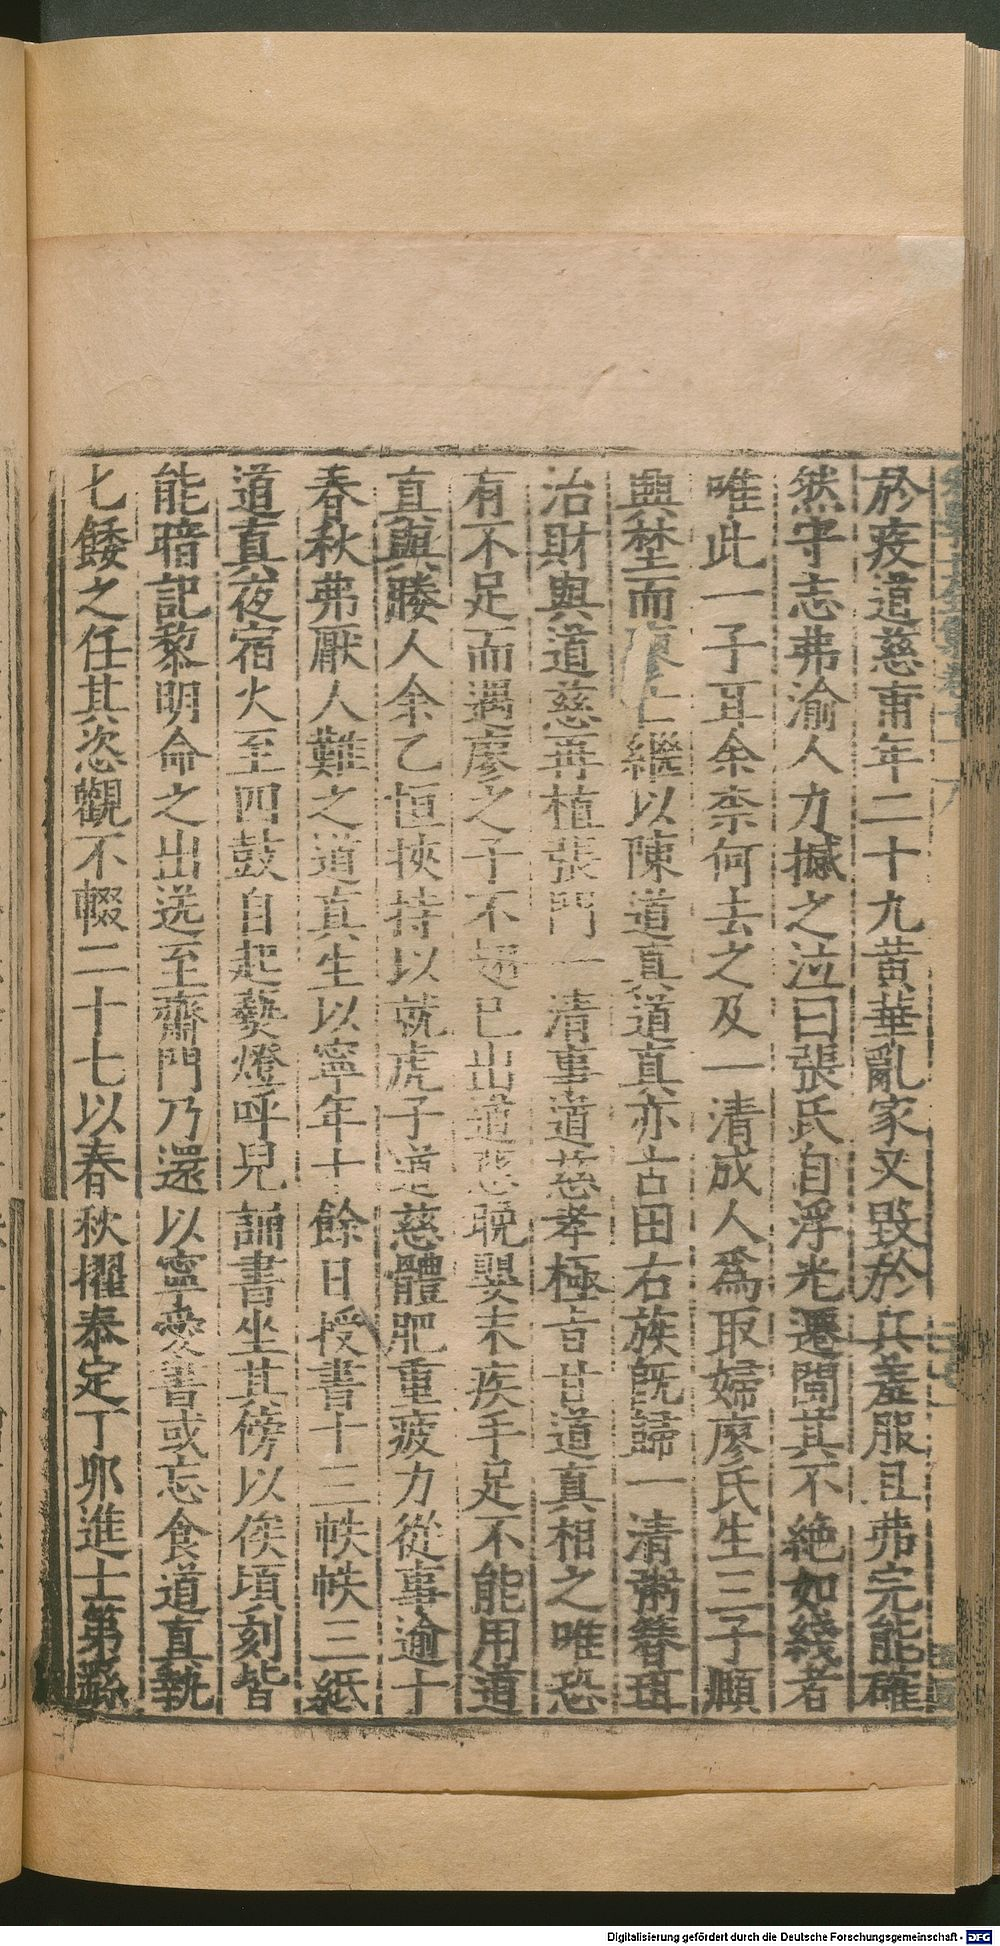 於疫道慈甫年二十九黃華亂家又毀於兵羞服且弗完能確
然守志弗渝人力撼之泣曰張氏自浮光遷閩其不絶如綫者
唯此一子耳余柰何去之及一清成人爲取婦廖氏生三子顒
興埜而廖亡繼以陳道真道真亦古田右族旣歸一清粥簪珥
治財與道慈再植張門一清事道慈孝極㫖甘道真相之唯恐
有不足而遇廖之子不翅已出道慈晚嬰末疾手足不能用道
真與媵人余乙恒挾持以就虎子道慈體肥重疲力從事逾十
春秋弗厭人難之道真生以寧年十餘日授書十三帙帙三紙
道真夜宿火至四鼓自起爇燈呼兒誦書坐其傍以俟頃刻皆
能暗記黎明命之出送至齋門乃還以寧愛書或忘食道真執
匕餧之任其恣觀不輟二十七以春秋擢泰定丁卯進士第繇
Digitalisierung gefördert durch die Deutsche Forschungsgemeinschaft - DFG